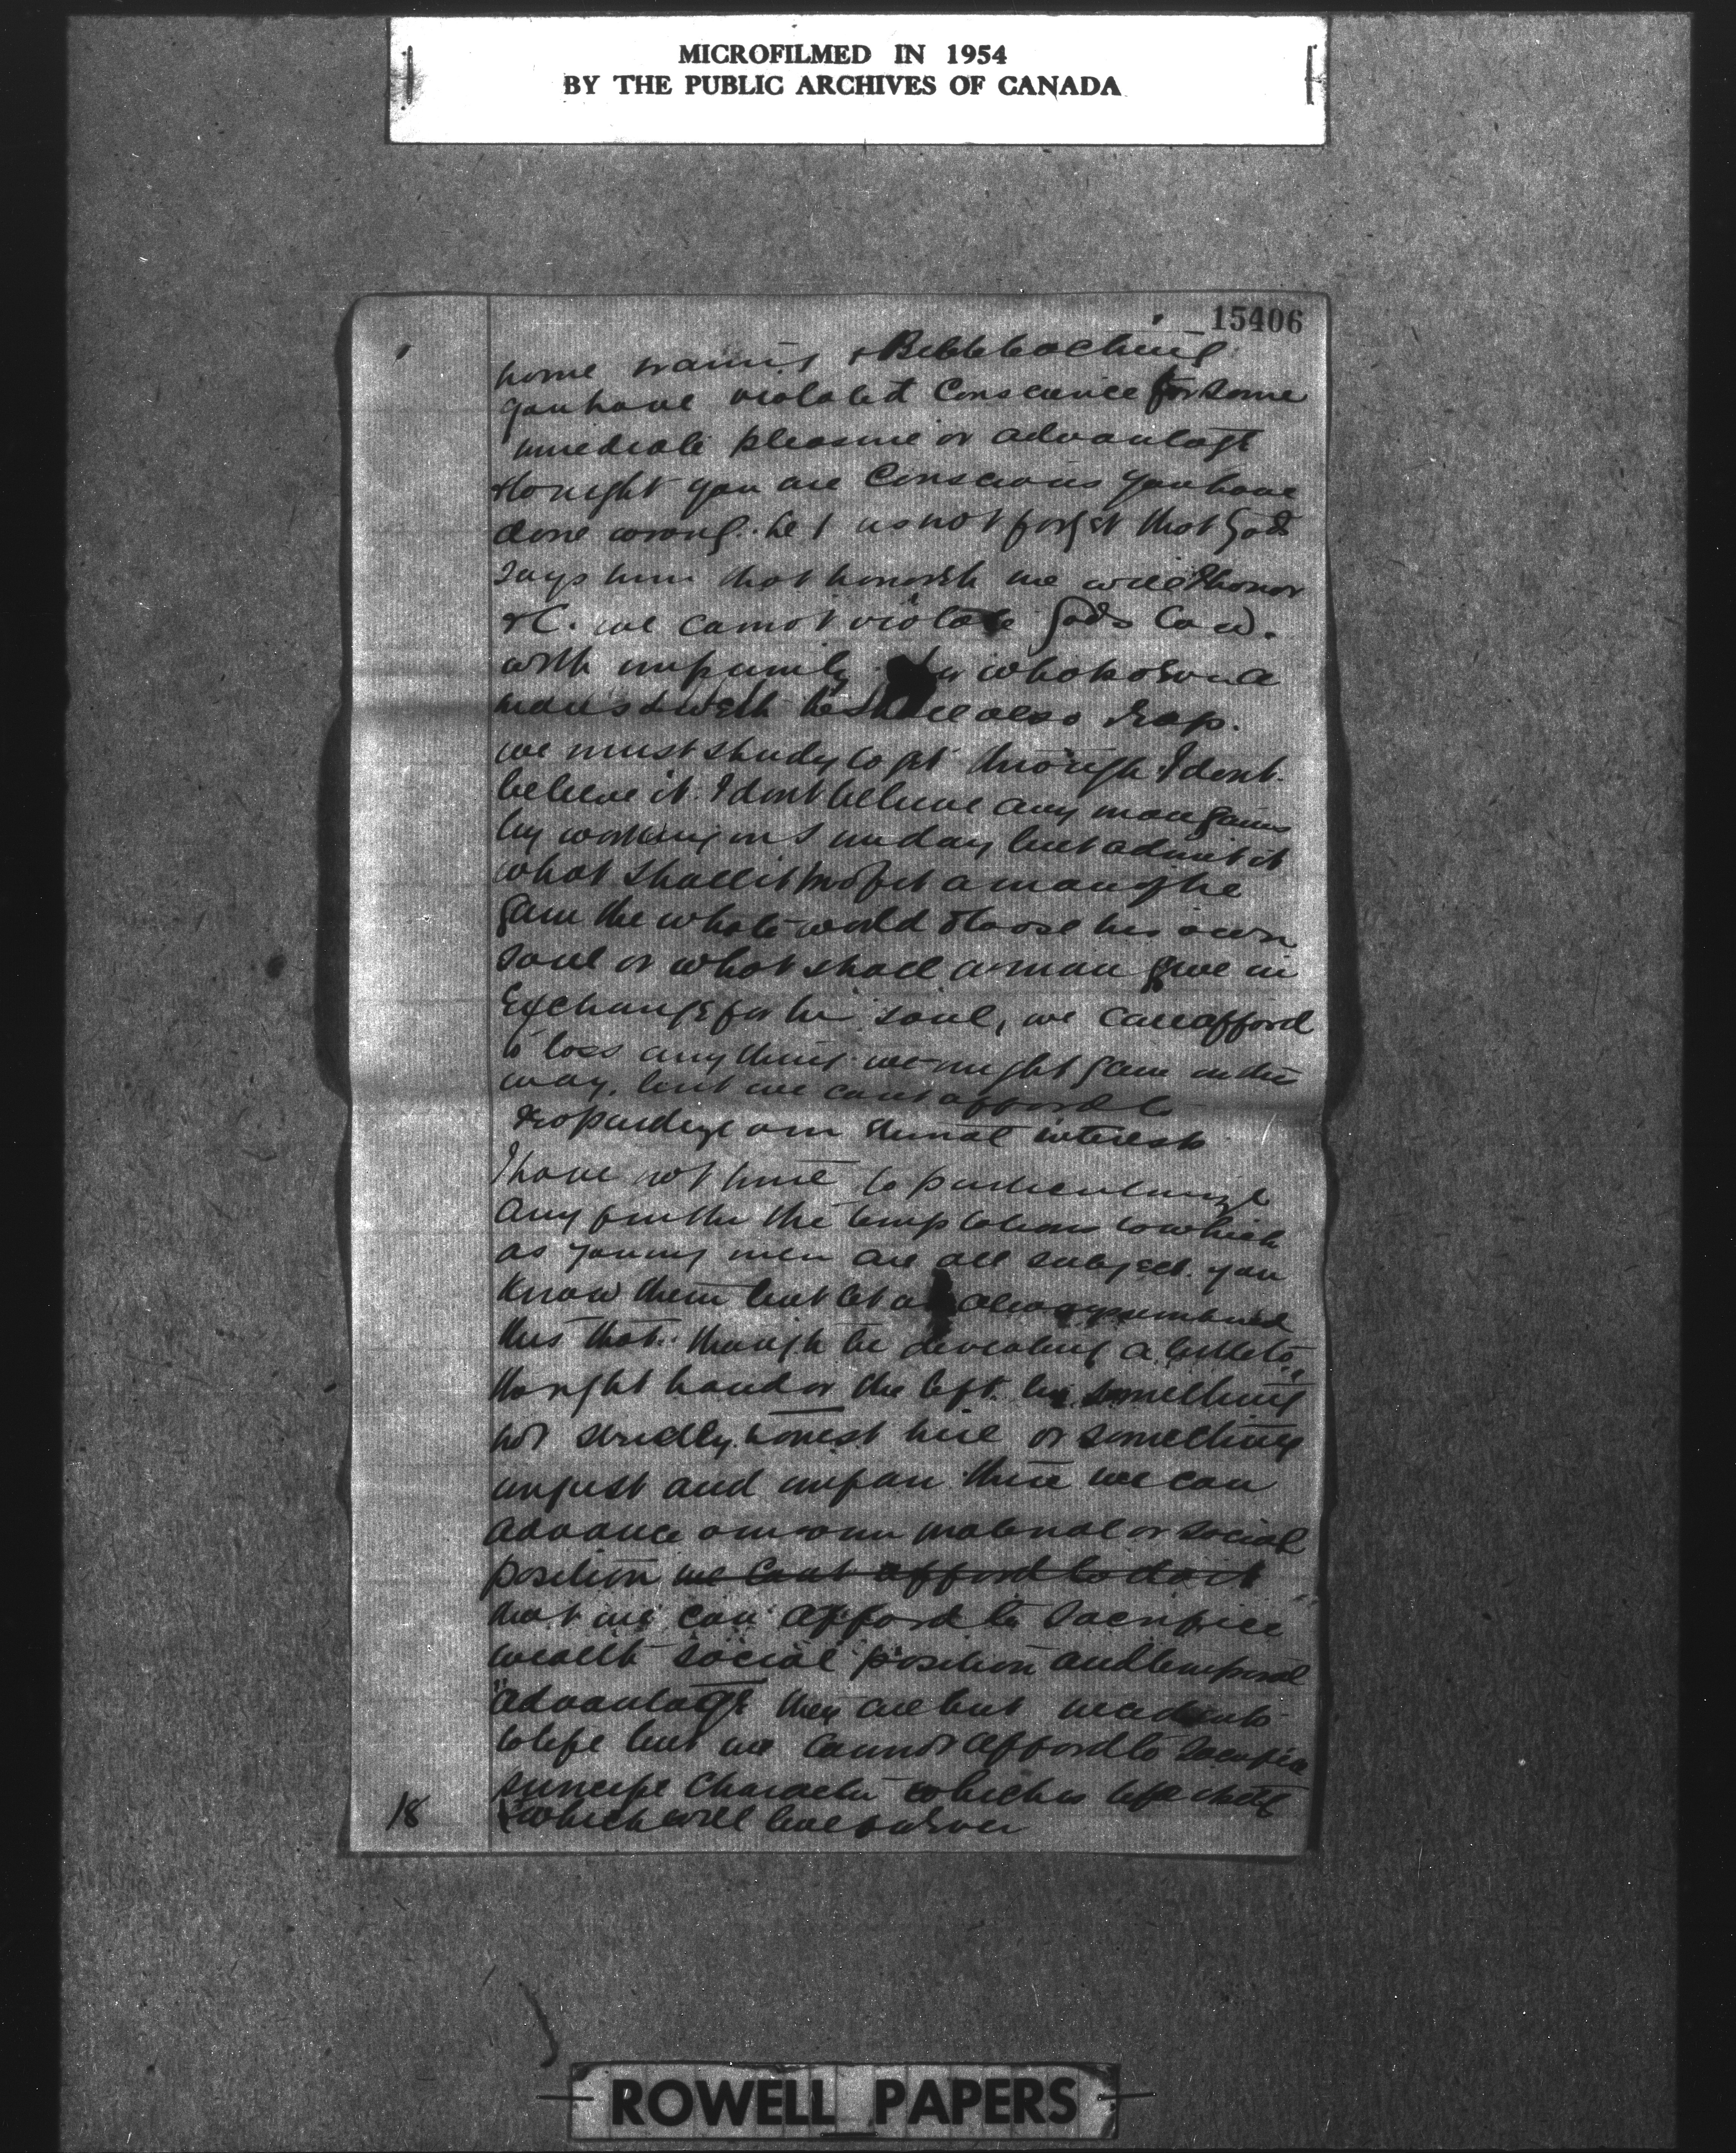 MICROFILMED IN 1954
BY THE PUBLIC ARCHIVES OF CANADA
15406
home training & Bible teaching
you have violated Conscience for some
immediate pleasure or advantage
& tonight you are Conscious you have
done wrong. Let us not forget that God
says him that honoreth me will I honor
&C. we cannot violate Gods Law.
with impunity for whatsoever a
man soweth he shall also reap.
we must study to get through I dont
believe it. I dont believe any man gains
by working on Sunday but admit it
what shall it profit a man if he
gain the whole world & loose his own
soul or what shall a man give in
Exchange for his soul, we can afford
to loss anything we might gain in this
way, but we cant afford to
jeopardize our eternal interests
I have not time to particularize
Any further the temptations to which
as young men are all subject. you
know them but let us always remember
this that. though by deviating a little to
the right hand or the left. by something
not strictly honest here or something
unjust and unfair there we can
advance our own material or social
position we cant afford to do it
that we can afford to sacrifice
wealth social position and temporal
advantage they are but incidents
to life but we cannot afford to sacrifice
principle Character which is life itself
& which will live forever
18
ROWELL PAPERS